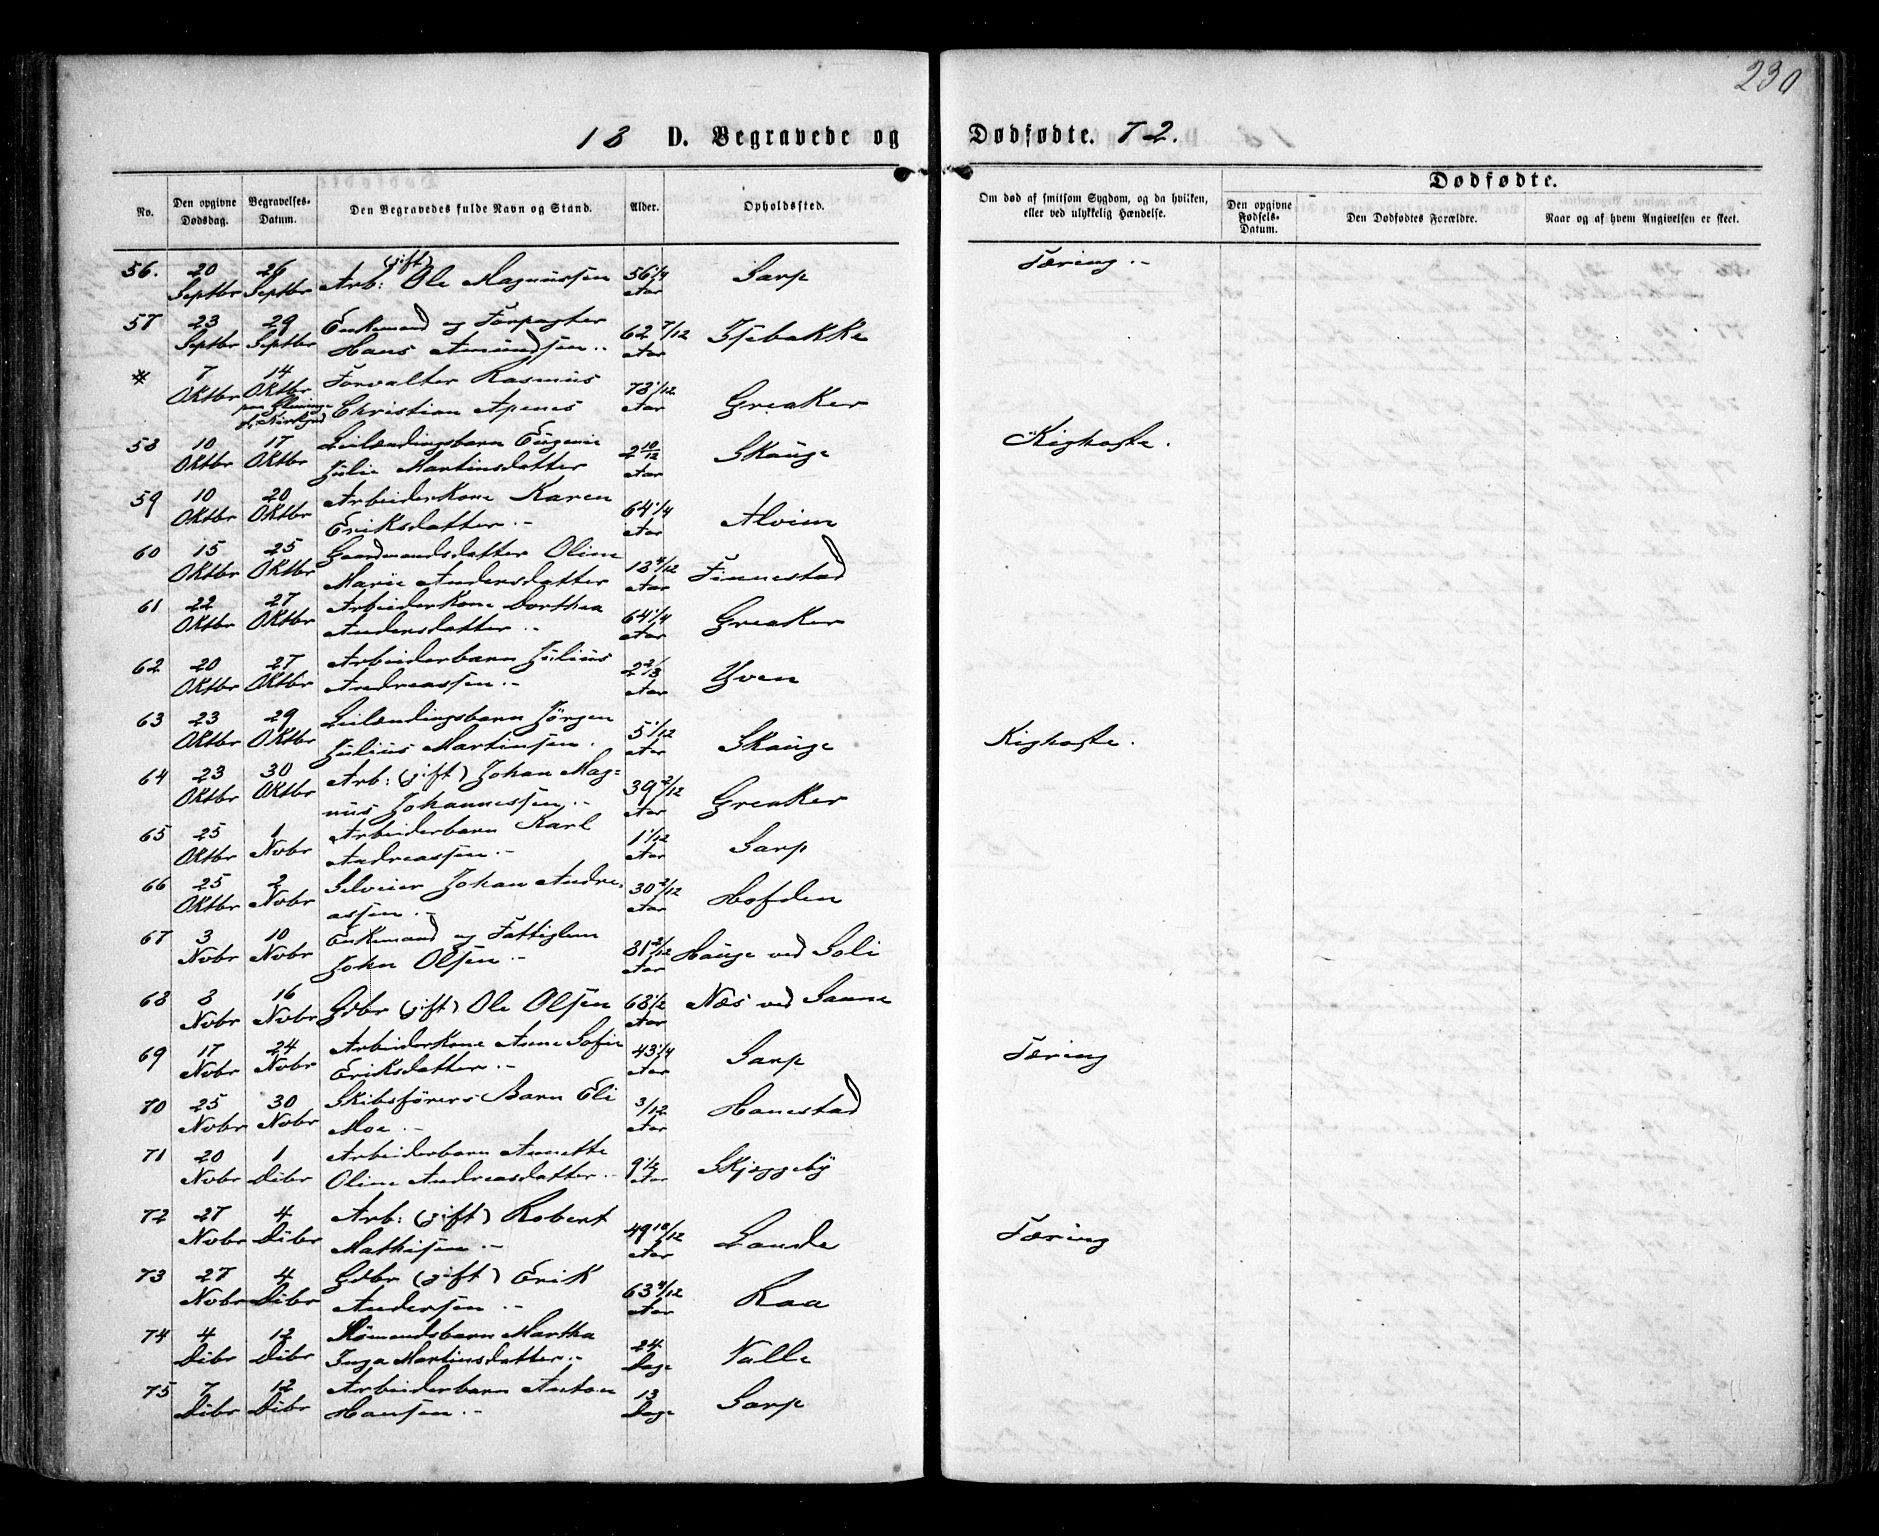 230
18 D. Begravede og Dødfødte. 72.
No.
Den opgivne Dødsdag.
Begravelses-Datum.
Den Begravedes fulde Navn og Stand.
Alder.
Opholdssted.
Om død af smitsom Sygdom, og da hvilken, eller ved ulykkelig Hændelse.
Dødfødte.
Den opgivne Fødsels-Datum.
Den Dødfødtes Forældre.
Naar og af hvem Angivelsen er skeet.
56. 20 Septbr 26 Septbr Arb: (gift) Ole Magnussen 56 1/4 Aar Sarp Tæring .-
57 23 Septbr 29 Septbr Enkemand og Forpagter
Hans Amundsen .- 62 7/12 Aar Isebakke
* 7 Oktbr 14 Oktbr Forvalter Rasmus
Christian Apenes 78 1/12 Aar Greaker
58 10 Oktbr 17 Oktbr Leilændingsbarn Eugenie
Julie Martinsdatter 2 10/12 Aar Skauge Kighoste.
59 10 Oktbr 20 Oktbr Arbeiderkone Karen
Eriksdatter .- 64 1/4 Aar Alvim
60 15 Oktbr 25 Oktbr Gaardmandsdatter Oline
Marie Andersdatter 18 4/12 Aar Finnestad
61 22 Oktbr 27 Oktbr Arbeiderkone Dorthea
Andersdatter .- 64 1/4 Aar Greaker
62 20 Oktbr 27 Oktbr Arbeiderbarn Julius
Andreassen .- 2 2/3 Aar Yven
63 23 Oktbr 29 Oktbr Leilændingsbarn Jørgen
Julius Martinsen. 5 1/12 Aar Skauge Kighoste.
64 23 Oktbr 30 Oktbr Arb: (gift) Johan Mag=
nus Johannessen .- 39 2/12 Aar Greaker
65 25 Oktbr 1 Novbr Arbeiderbarn Karl
Andreassen .- 1 1/12 Aar Sarp
66 25 Oktbr 2 Novbr Selveier Johan Andre-
assen .- 30 2/12 Aar Hofden
67 3 Novbr 10 Novbr Enkemand og Fattiglem
John Olsen .- 81 2/12 Aar Hauge ved Soli
68 8 Novbr 16 Novbr Gdbr (gift) Ole Olsen 68 1/2 Aar Næs ved Sanne
69 17 Novbr 24 Novbr Arbeiderkone Anne Sofie
Eriksdatter .- 43 1/4 Aar Sarp Tæring
70 25 Novbr 30 Novbr Skibsførers Barn Eli
Moe .- 3/12 Aar Hanestad
71 20 Novbr 1 Dibr Arbeiderbarn Annette
Oline Andreasdatter .- Aar Skjeggeby
72 27 Novbr 4 Dibr Arb: (gift) Robert
Mathisen .- 49 10/12 Aar Lande Tæring
73 27 Novbr 4 Dibr Gdbr (gift) Erik
Andersen .- 63 4/12 Aar Raa
74 4 Dibr 12 Dibr Rømandsbarn Martha
Inga Martinsdatter .- 24 Dage Valle
75 7 Dibr 12 Dibr Arbeiderbarn Anton
Hansen .- 13 Dage Sarp